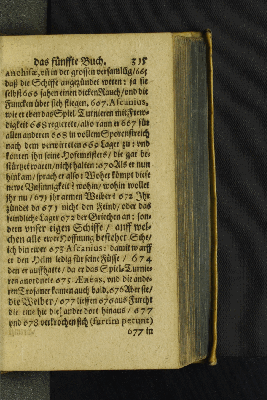 das fünffte Buch. 315
Anchisæ, uñ in der grossen versamlũg/665
daß die Schiffe angezündet weren: ja sie
selbst 666 sahen einen dicken Rauch/und die
Funcken über sich fliegen. 667. Ascanius,
wie er eben das Spiel-Turnieren mit
digkeit 668 regierete/also rann er 667 für
allen anderen 668 in vollem Sporenstreich
nach dem verwirreten 669 Lager zu: und
konten ihn seine Hofemeisters/ die gar be-
stürtzet waren/nicht halten: 670 Als er nun
hinkam/sprach er also: Woher kömpt diese
newe Unsinnigkeit? wohin/ wohin wollet
ihr nu/ 671 ihr armen Weiber? 672 Ihr
zündet da 673 nicht den Feind/ oder das
feindliche Lager 672 der Griechen an: son-
dern unser eigen Schiffe/ auff wel-
chen alle ewer Hoffnung bestehet Sehet
ich bin ewer 673 Ascanius: damit warff
er den Helm ledig für seine Füsse/ 674
den er auffhatte/ da er das Spiel-Turnie-
ren anordnete 675. Æneas, und die ande-
ren Trojaner kamen auch bald. 676 Aber sie/
die Weiber/ 677 lieffen 676 aus Furcht
die eine hie die ander dort hinaus/ 677
und 678 verkrochen sich (furtim petunt)
677 in